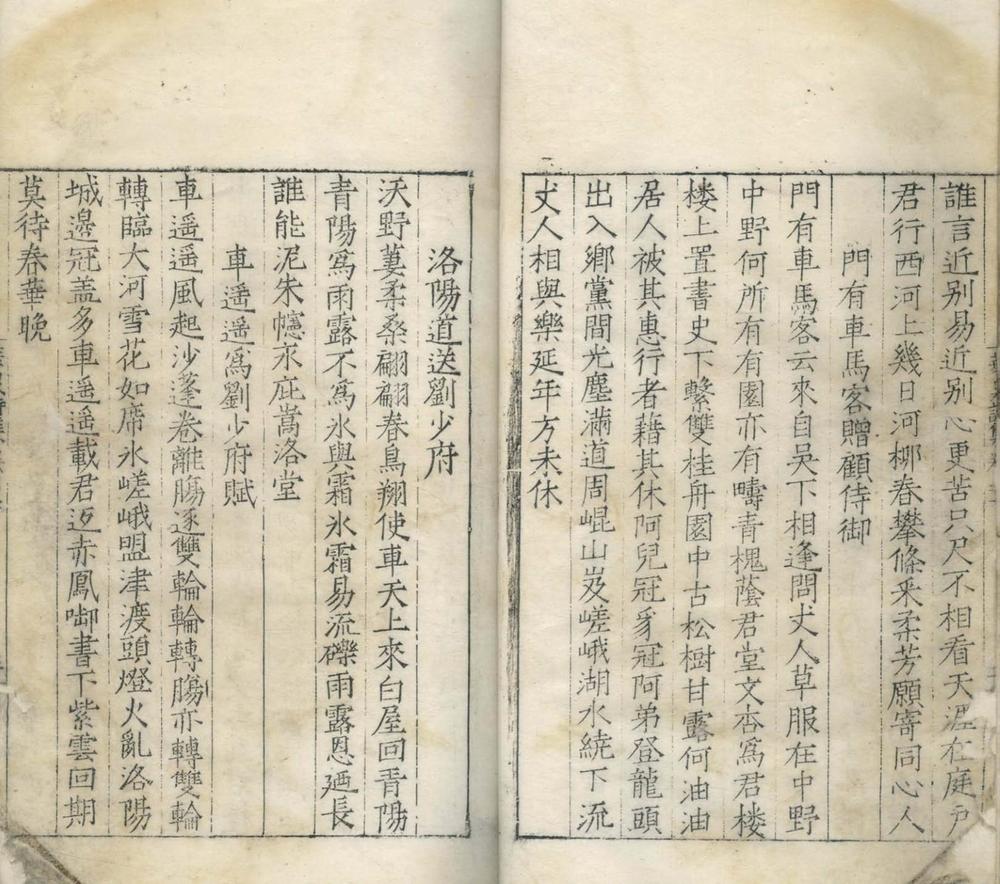 誰言近别易近别心更苦只尺不相看天涯在庭戶
君行西河上幾日河柳春攀條釆柔芳願寄同心人
門有車馬客贈顧侍御
門有車馬客云來自吳下相逢問丈人草服在中野
中野何所有有園亦有疇青槐蔭君堂文杏爲君楼
楼上置書史下繫雙桂舟園中古松樹甘露何油油
居人被其惠行者藉其休阿兒冠豸冠阿弟登龍頭
出入鄉黨間光塵滿道周崐山岌嵯峨湖水繞下流
丈人相與樂延年方未休
洛陽道送劉少府
沃野萋柔桑翩翩春鳥翔使車天上來白屋回青陽
青陽爲雨露不爲氷與霜氷霜易流礫雨露恩廼長
誰能泥朱幰永庇嵩洛堂
車遥遥爲劉少府賦
車遥遥風起沙蓬卷離膓逐雙輪輪轉膓亦轉雙輪
轉臨大河雪花如席氷嵯峨盟津渡頭燈火亂洛陽
城邊冠盖多車遥遥載君迈赤鳳啣書下紫雲回期
莫待春華晚